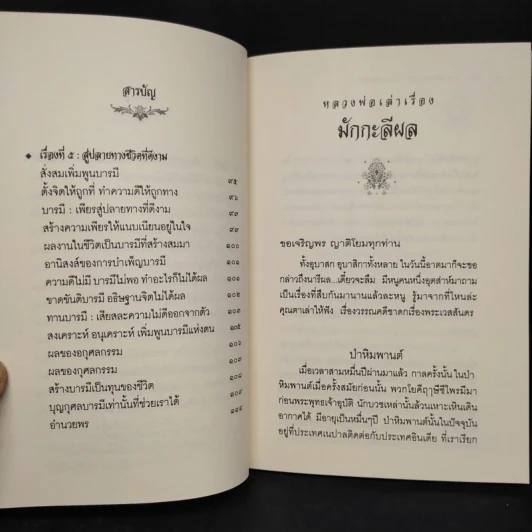 สารบัญ
เรื่องที่ ๕ : สู่ปลายทางชีวิตที่ดีงาม
สั่งสมเพิ่มพูนบารมี ๙๕
ตั้งจิตให้ถูกที่ ทำความดีให้ถูกทาง ๙๖
บารมี : เพียรสู่ปลายทางที่ดีงาม ๙๓
สร้างความเพียรให้แนบเนียนอยู่ในใจ ๙๙
ผลงานในชีวิตเป็นบารมีที่สร้างสมมา ๑๐๐
อานิสงส์ของการบำเพ็ญบารมี ๑๐๑
ความดีไม่มี บารมีไม่พอ ทำอะไรก็ไม่ได้ผล ๑๐๒
ขาดขันติบารมี อธิษฐานจิตไม่ได้ผล ๑๐๓
ทานบารมี : เสียสละความไม่ดีออกจากตัว
สงเคราะห์ อนุเคราะห์ เพิ่มพูนบารมีแห่งตน ๑๐๕
ผลของอกุศลกรรม
ผลของกุศลกรรม
สร้างบารมีเป็นทุนของชีวิต
บุญกุศลบารมีเท่านั้นที่ช่วยเราได้
อำนวยพร
หลวงพ่อเล่าเรื่อง
มักกะลีผล
ขอเจริญพร ญาติโยมทุกท่าน
ทั้งอุบาสก อุบาสิกาทั้งหลาย ในวันนี้อาตมาก็จะขอ
กล่าวถึงนารีผล...เดี๋ยวจะลืม มีหนูคนหนึ่งอุตส่าห์มาถาม
เป็นเรื่องที่สืบกันมานานแล้วละหนู รู้มาจากที่ไหนล่ะ
คุณตาเล่าให้ฟัง เรื่องวรรณคดีชาดกเรื่องพระเวสสันดร
ป่าหิมพานต์
เมื่อเวลาสามหมื่นปีผ่านมาแล้ว กาลครั้งนั้น ในป่า
หิมพานต์เมื่อครั้งสมัยก่อนนั้น พวกโยคีฤๅษีชีไพรมีมา
ก่อนพระพุทธเจ้าอุบัติ นักบวชเหล่านั้นล้วนเหาะเหินเดิน
อากาศได้ มีอายุเป็นหมื่นๆปี ป่าหิมพานต์นั้นในปัจจุบัน
อยู่ที่ประเทศเนปาลติดต่อกับประเทศอินเดีย ที่เราเรียก